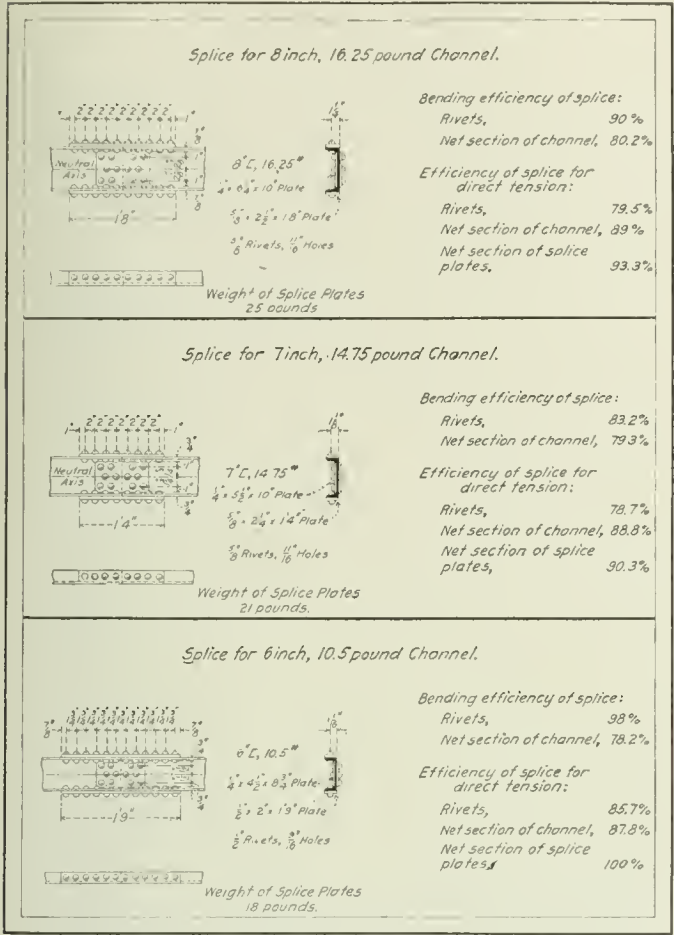 Splice for 8 inch, 16.25 pound Channel.
2" 2" 2" 2" 2" 2" 2" 2" 2"
Neutral
Axis
1'8"
8"[, 16.25#
1/4" x 6 1/4" x 10" Plate
5/8" x 2 1/2" x 1'8" Plate
5/8" Rivets, 11/16" Holes
Weight of Splice Plates
25 pounds
Bending efficiency of splice:
Rivets, 90%
Net section of channel, 80.2%
Efficiency of splice for
direct tension:
Rivets, 79.5%
Net section of channel, 89%
Net section of splice
plates, 93.3%
Splice for 7 inch, 14.75 pound Channel.
1" 2" 2" 2" 2" 2" 2" 2" 1"
3/4"
Neutral
Axis
1"
1"
3/4"
1'4"
7"[, 14 75#
1/4" x 5 1/2" x 10" Plate
5/8" x 2 1/4" x 1'4" Plate
5/8" Rivets, 11/16" Holes
Weight of Splice Plates
21 pounds.
Bending efficiency of splice:
Rivets, 83.2%
Net section of channel, 79.3%
Efficiency of splice for
direct tension:
Rivets, 78.7%
Net section of channel, 88.8%
Net section of splice
plates, 90.3%
Splice for 6 inch, 10.5 pound Channel.
7/8" 1 3/4" 1 3/4" 1 3/4" 1 3/4" 1 3/4" 1 3/4" 1 3/4" 1 3/4" 1 3/4" 1 3/4" 1 3/4" 7/8"
3/4"
1'9"
6"[, 10.5#
1/4" x 4 1/2" x 8 3/4" Plate
1/2" x 2" x 1'9" Plate
1/2" Rivets, 9/16" Holes
Weight of Splice Plates
18 pounds.
Bending efficiency of splice:
Rivets, 98%
Net section of channel, 78.2%
Efficiency of splice for
direct tension:
Rivets, 85.7%
Net section of channel, 87.8%
Net section of splice
plates, 100%